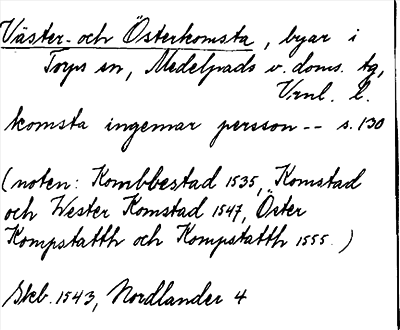 Väster- och Österkomsta, byar i
Torps sn, Medelpads v. doms. tg,
Vrnl. l.
komsta ingemar persson -- s. 130
(noten: Kombbestad 1535, Komstad
och Wester Komstad 1547, Öster
Kompstatth och Kompstatth 1555. )
Skb. 1543, Nordlander 4